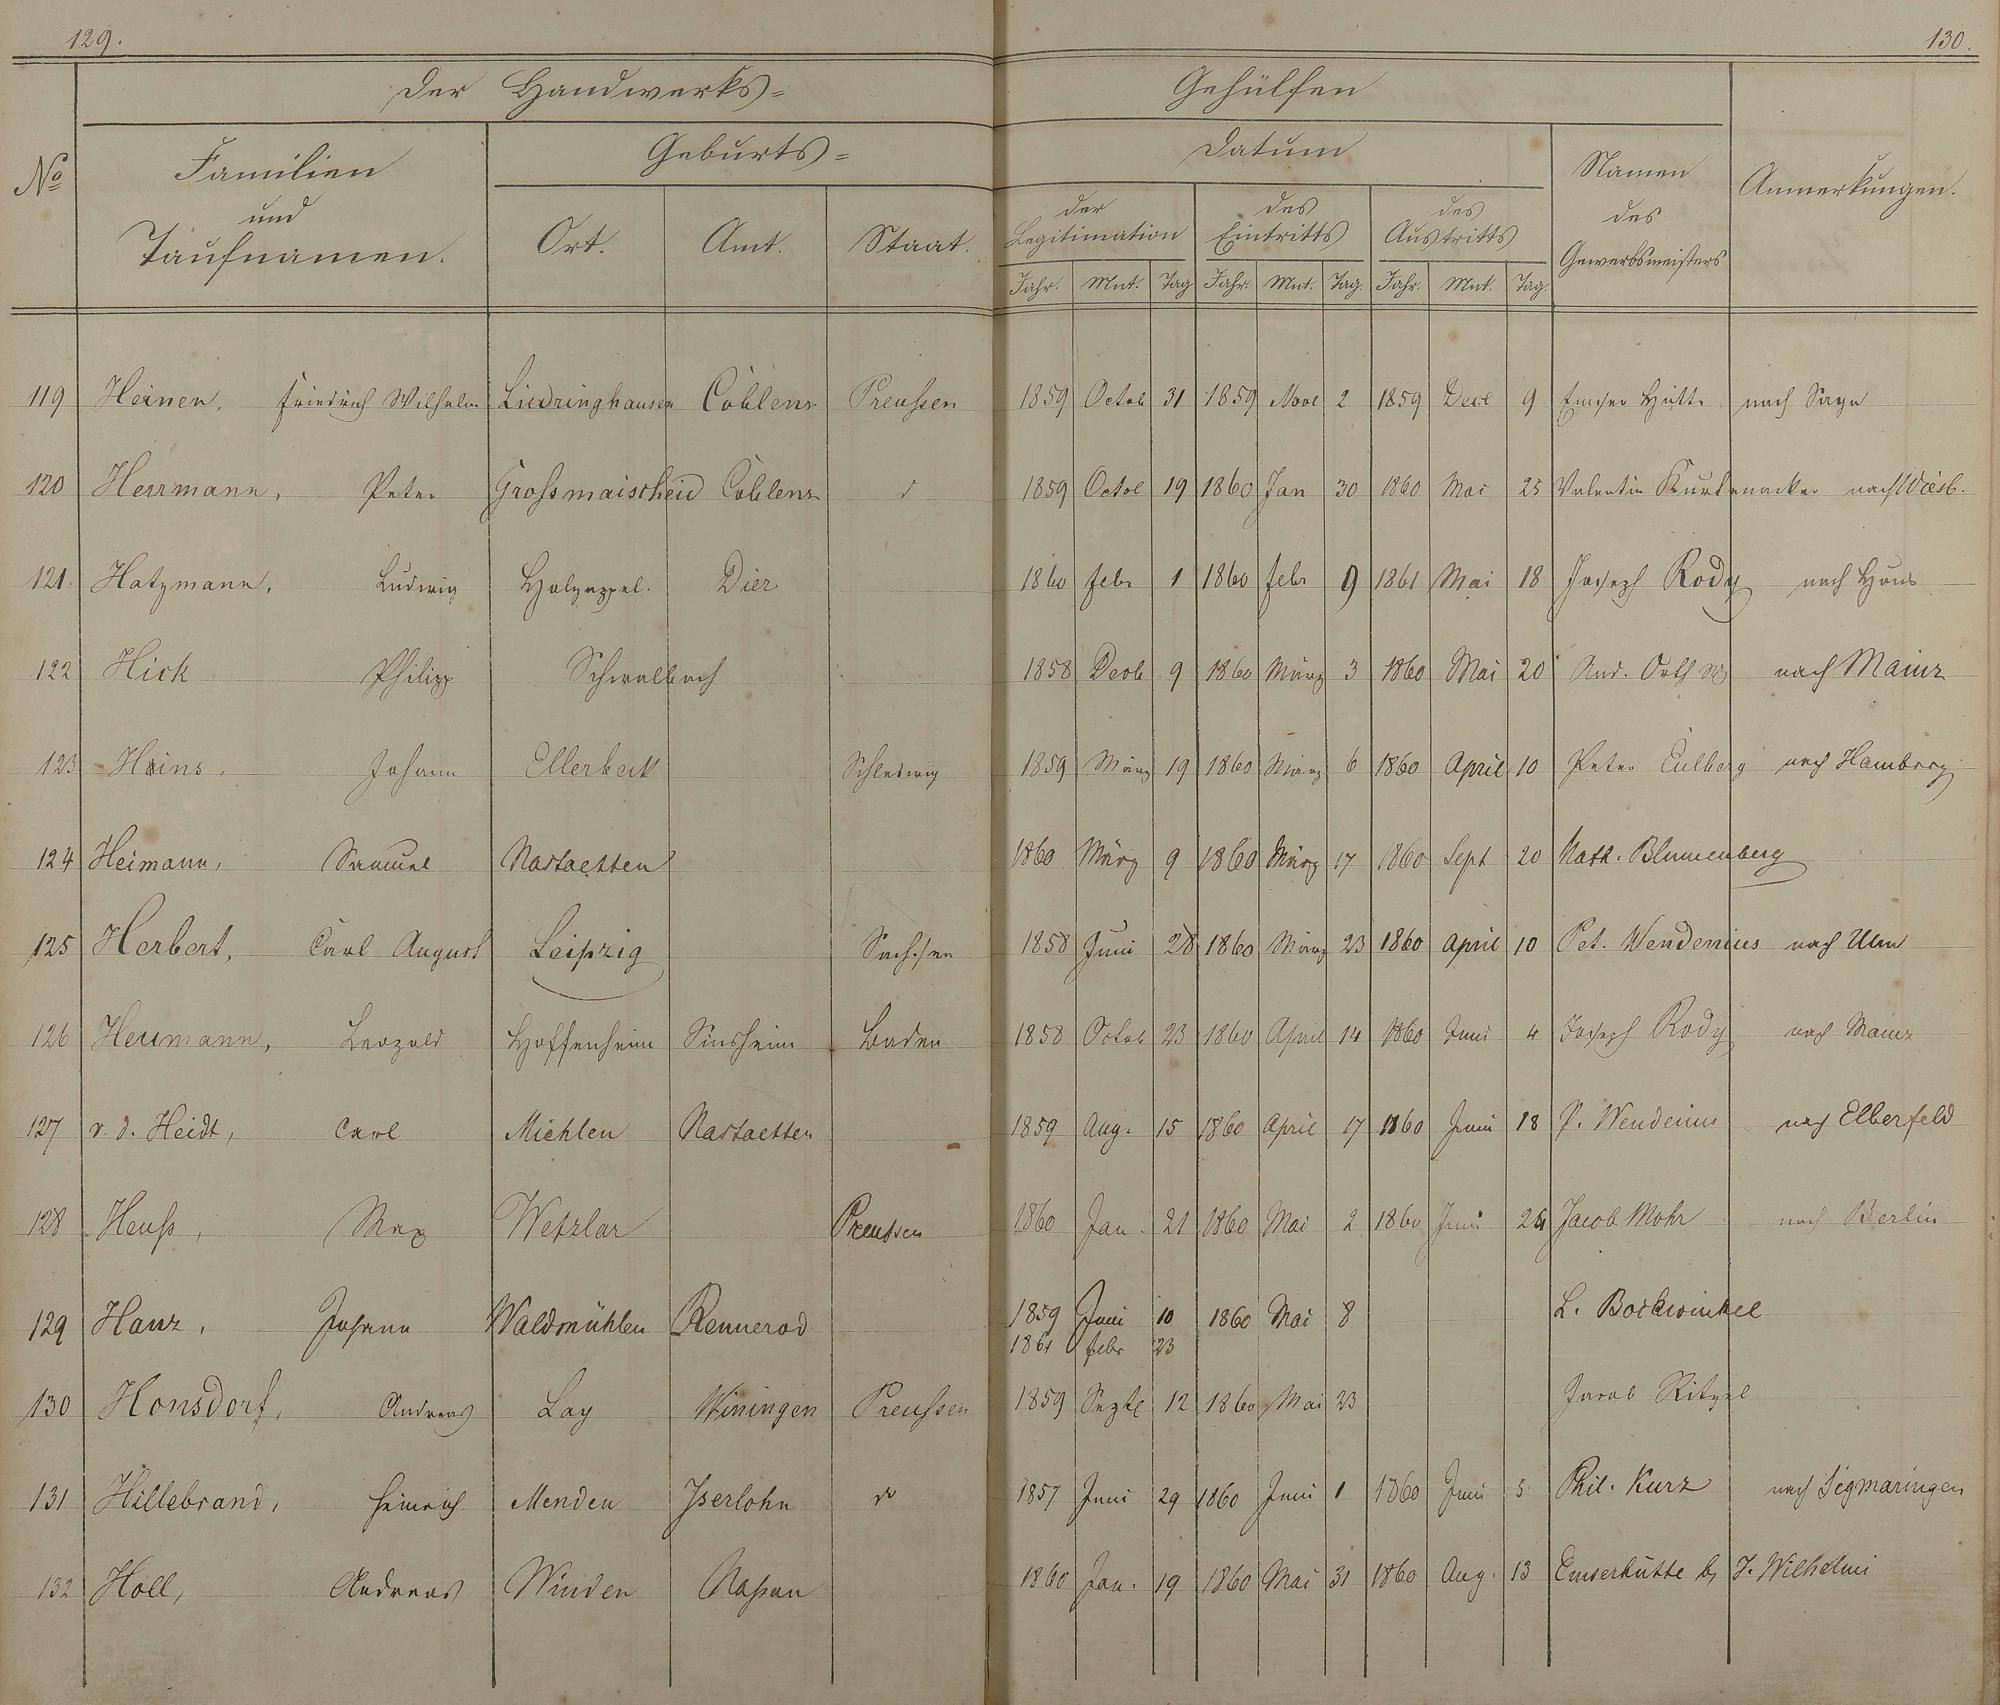 129.
130.
Der Handwerks= Gehülfen
No
Familien und Taufnamen.
Geburts=
Ort. Amt. Staat.
Datum
der Legitimation
des Eintritts
des Austritts
Jahr. Mnt. Tag Jahr. Mnt. Tag. Jahr. Mnt. Tag.
Namen des Gewerbsmeisters
Anmerkungen.
119 Heinen, Friedrich Wilhelm Liedringhausen Coblenz Preußen 1859 Octob 31 1859 Nove 2 1859 Dece 9 Emser Hütte nach Sayn
120 Herrmann, Peter Grossmaischeid Coblenz 1859 Octob 19 1860 Jan 30 1860 Mai 25 Valentin nach Wiesb.
121. Hatzmann, Ludwig Holzappel. Diez 1860 febr 1 1860 febr 9 1861 Mai 18 Joseph Rody nach Haus
122 Hick Philipp Schwalbach 1858 Decb 9 1860 März 3 1860 Mai 20 And. Orth nach Mainz
123 Heins, Johann Ellerbeck Schleswig 1859 März 19 1860 März 6 1860 April 10 Peter Eulberg nach Hamburg
124 Heimann, Samuel Nastaetten 1860 März 9 1860 März 17 1860 Sept 20 Nath. Blumenberg
125 Herbert, Carl August Leipzig Sachsen 1858 Juni 28 1860 März 23 1860 April 10 Pet. Wendenius nach Ulm
126 Heumann, Leopold Hoffenheim Sinsheim Baden 1858 Octob 23 1860 April 14 1860 Juni 4 Joseph Rody nach Mainz
127 v. d. Heidt, Carl Miehlen Nastaetten 1859 Aug. 15 1860 April 17 1860 Juni 18 P. Wendenius nach Elberfeld
128 Heuß, Max Wetzlar Preussen 1860 Jan. 21 1860 Mai 2 1860 Juni Jacob Mohr nach Berlin
129 Hanz, Johann Waldmühlen Rennerod 1859 Juni 10 1860 Mai 8 L. Bockwinkel
1861 febr 23
130 Honsdorf, Andreas Lay Winingen Preußen 1859 Septe 12 1860 Mai 23 Jacob Ritzel
131 Hillebrand, Heinrich Menden Iserlohn do 1857 Juni 29 1860 Juni 1 1860 Juni 5 Phil. Kurz nach Sigmaringen
132 Holl, Andreas Winden Naßau 1860 Jan. 19 1860 Mai 31 1860 Aug. 13 Emserhütte b. J. Wilhelmi